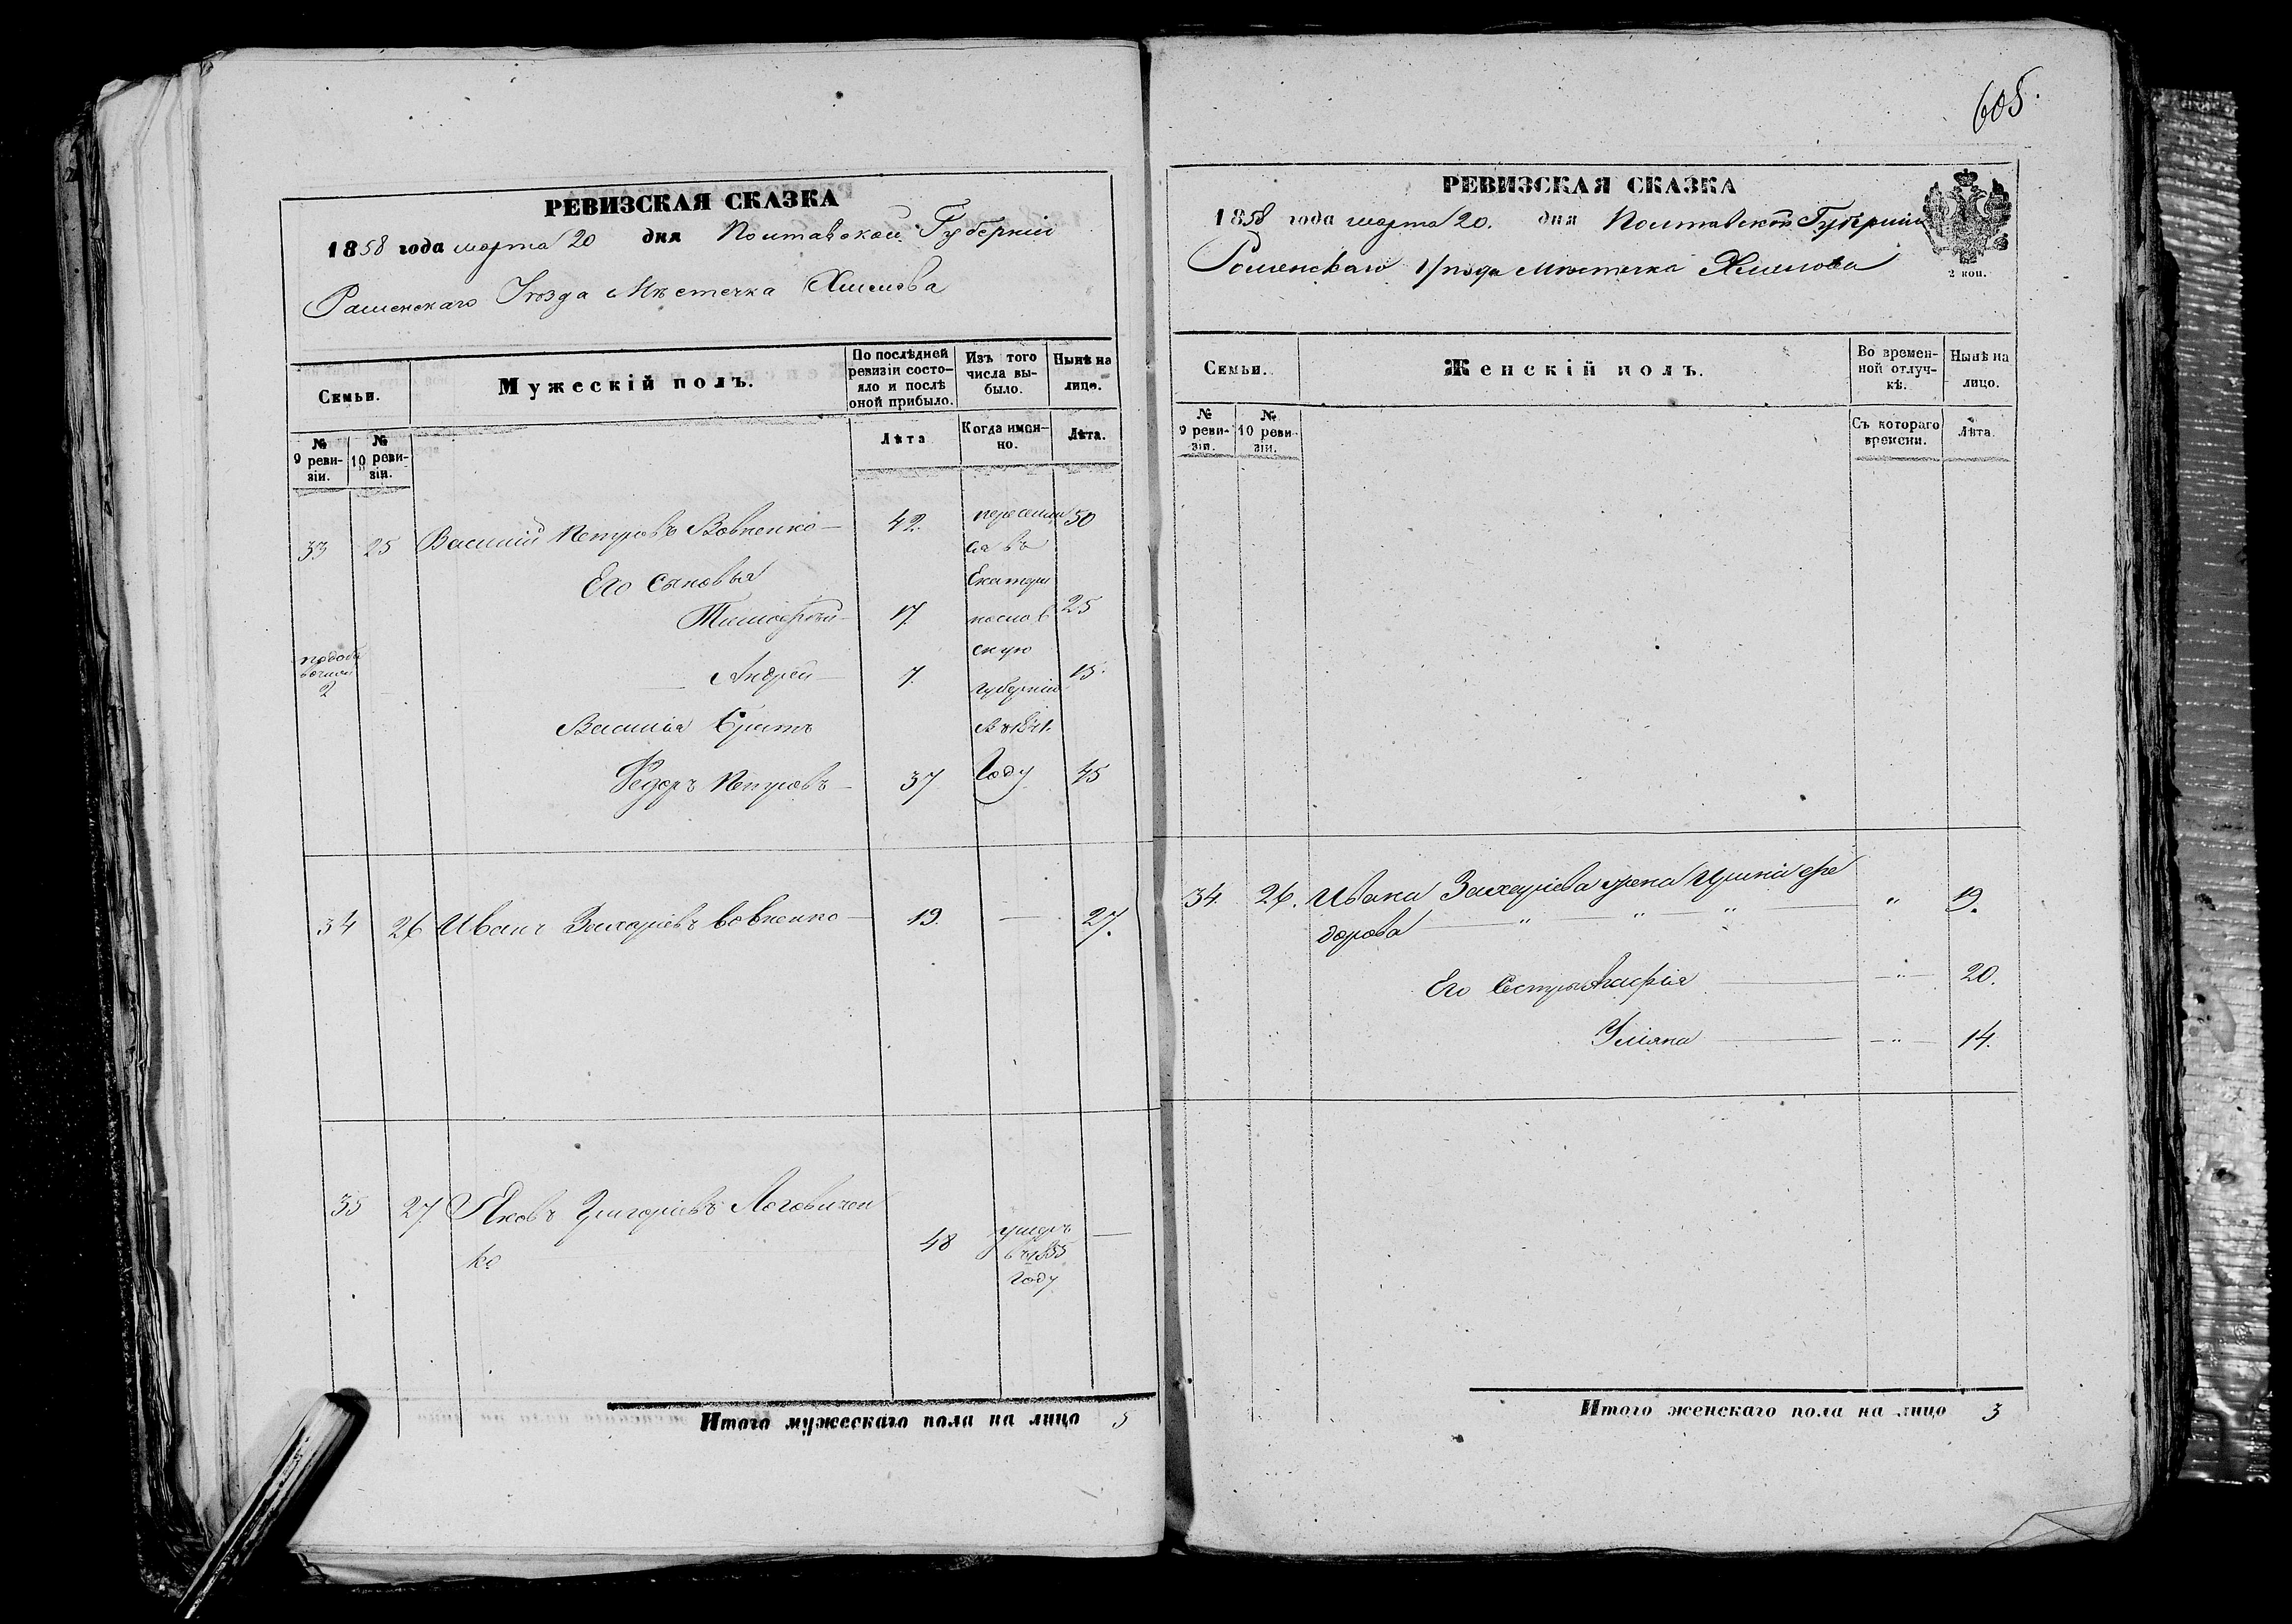 605.
РЕВИЗСКАЯ СКАЗКА
1858 года марта 20 дня Полтавской Губерніи
Роменскаго Уѣзда Мѣстечка Хмелова
Семьи.
Мужескій полъ.
По послѣдней ревизіи состо-
яло и послѣ
оной прибыло.
Изъ того
числа вы-
было.
Нынѣ на
лицо.
№
9 реви-
зіи.
№
10 реви-
зіи.
Лѣта
Когда имен-
но.
Лѣта.
33 25 Василій Петровъ Вовненко 42. переселил 50
ся въ
Его сыновья Екатери
Тимофѣй 17. нослов 25
скую
Андрей 7. губернію 15.
2
Василія братъ въ 1851.
Федоръ Петровъ 37 Году 45
34 26 Иванъ Захаріевъ Вовненко 19. — 27.
35 27. Яковъ Григоріевъ Логвинен
ко 48 умеръ —
въ 1855
году
Итого мужескаго пола на лицо 5
РЕВИЗСКАЯ СКАЗКА
1858 года марта 20. дня Полтавской Губерніи
Роменскаго Уѣзда Мѣстечка Хмелова
2 коп.
Семьи.
Женскій полъ.
Во времен-
ной отлуч-
кѣ.
Нынѣ на
лицо.
№
9 реви-
зіи.
№
10 реви-
зіи.
Съ котораго
времени.
Лѣта.
34. 26. Ивана Захаріева жена Ирина Фе
дорова " " " " 19.
Его Сестры Агафія — " — 20.
Уліяна — " — 14.
Итого женскаго пола на лицо 3